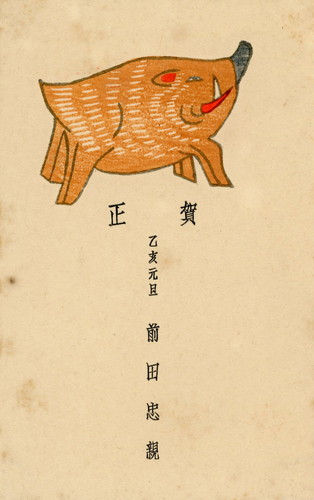 賀正
乙亥元旦
前田忠親